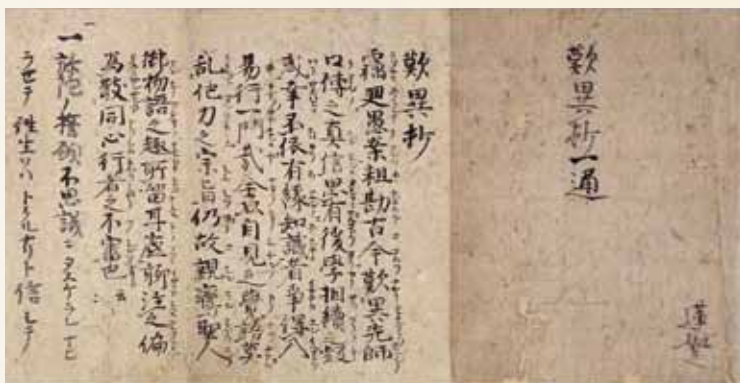 歎異抄一通
蓮如之
歎異抄
竊廻愚案粗勘古今歎異先師
口傳之真信思有後學相續之疑
惑幸不依有縁知識者争得入
易行一門哉全以自見之覺語莫
乱他力之宗旨仍故親鸞聖人
御物語之趣所留耳底聊注之偏
為散同心行者之不審也云
一弥陀ノ誓願不思議ニタスケラレマヒ
ラセテ往生ヲハトクルナリト信シテ